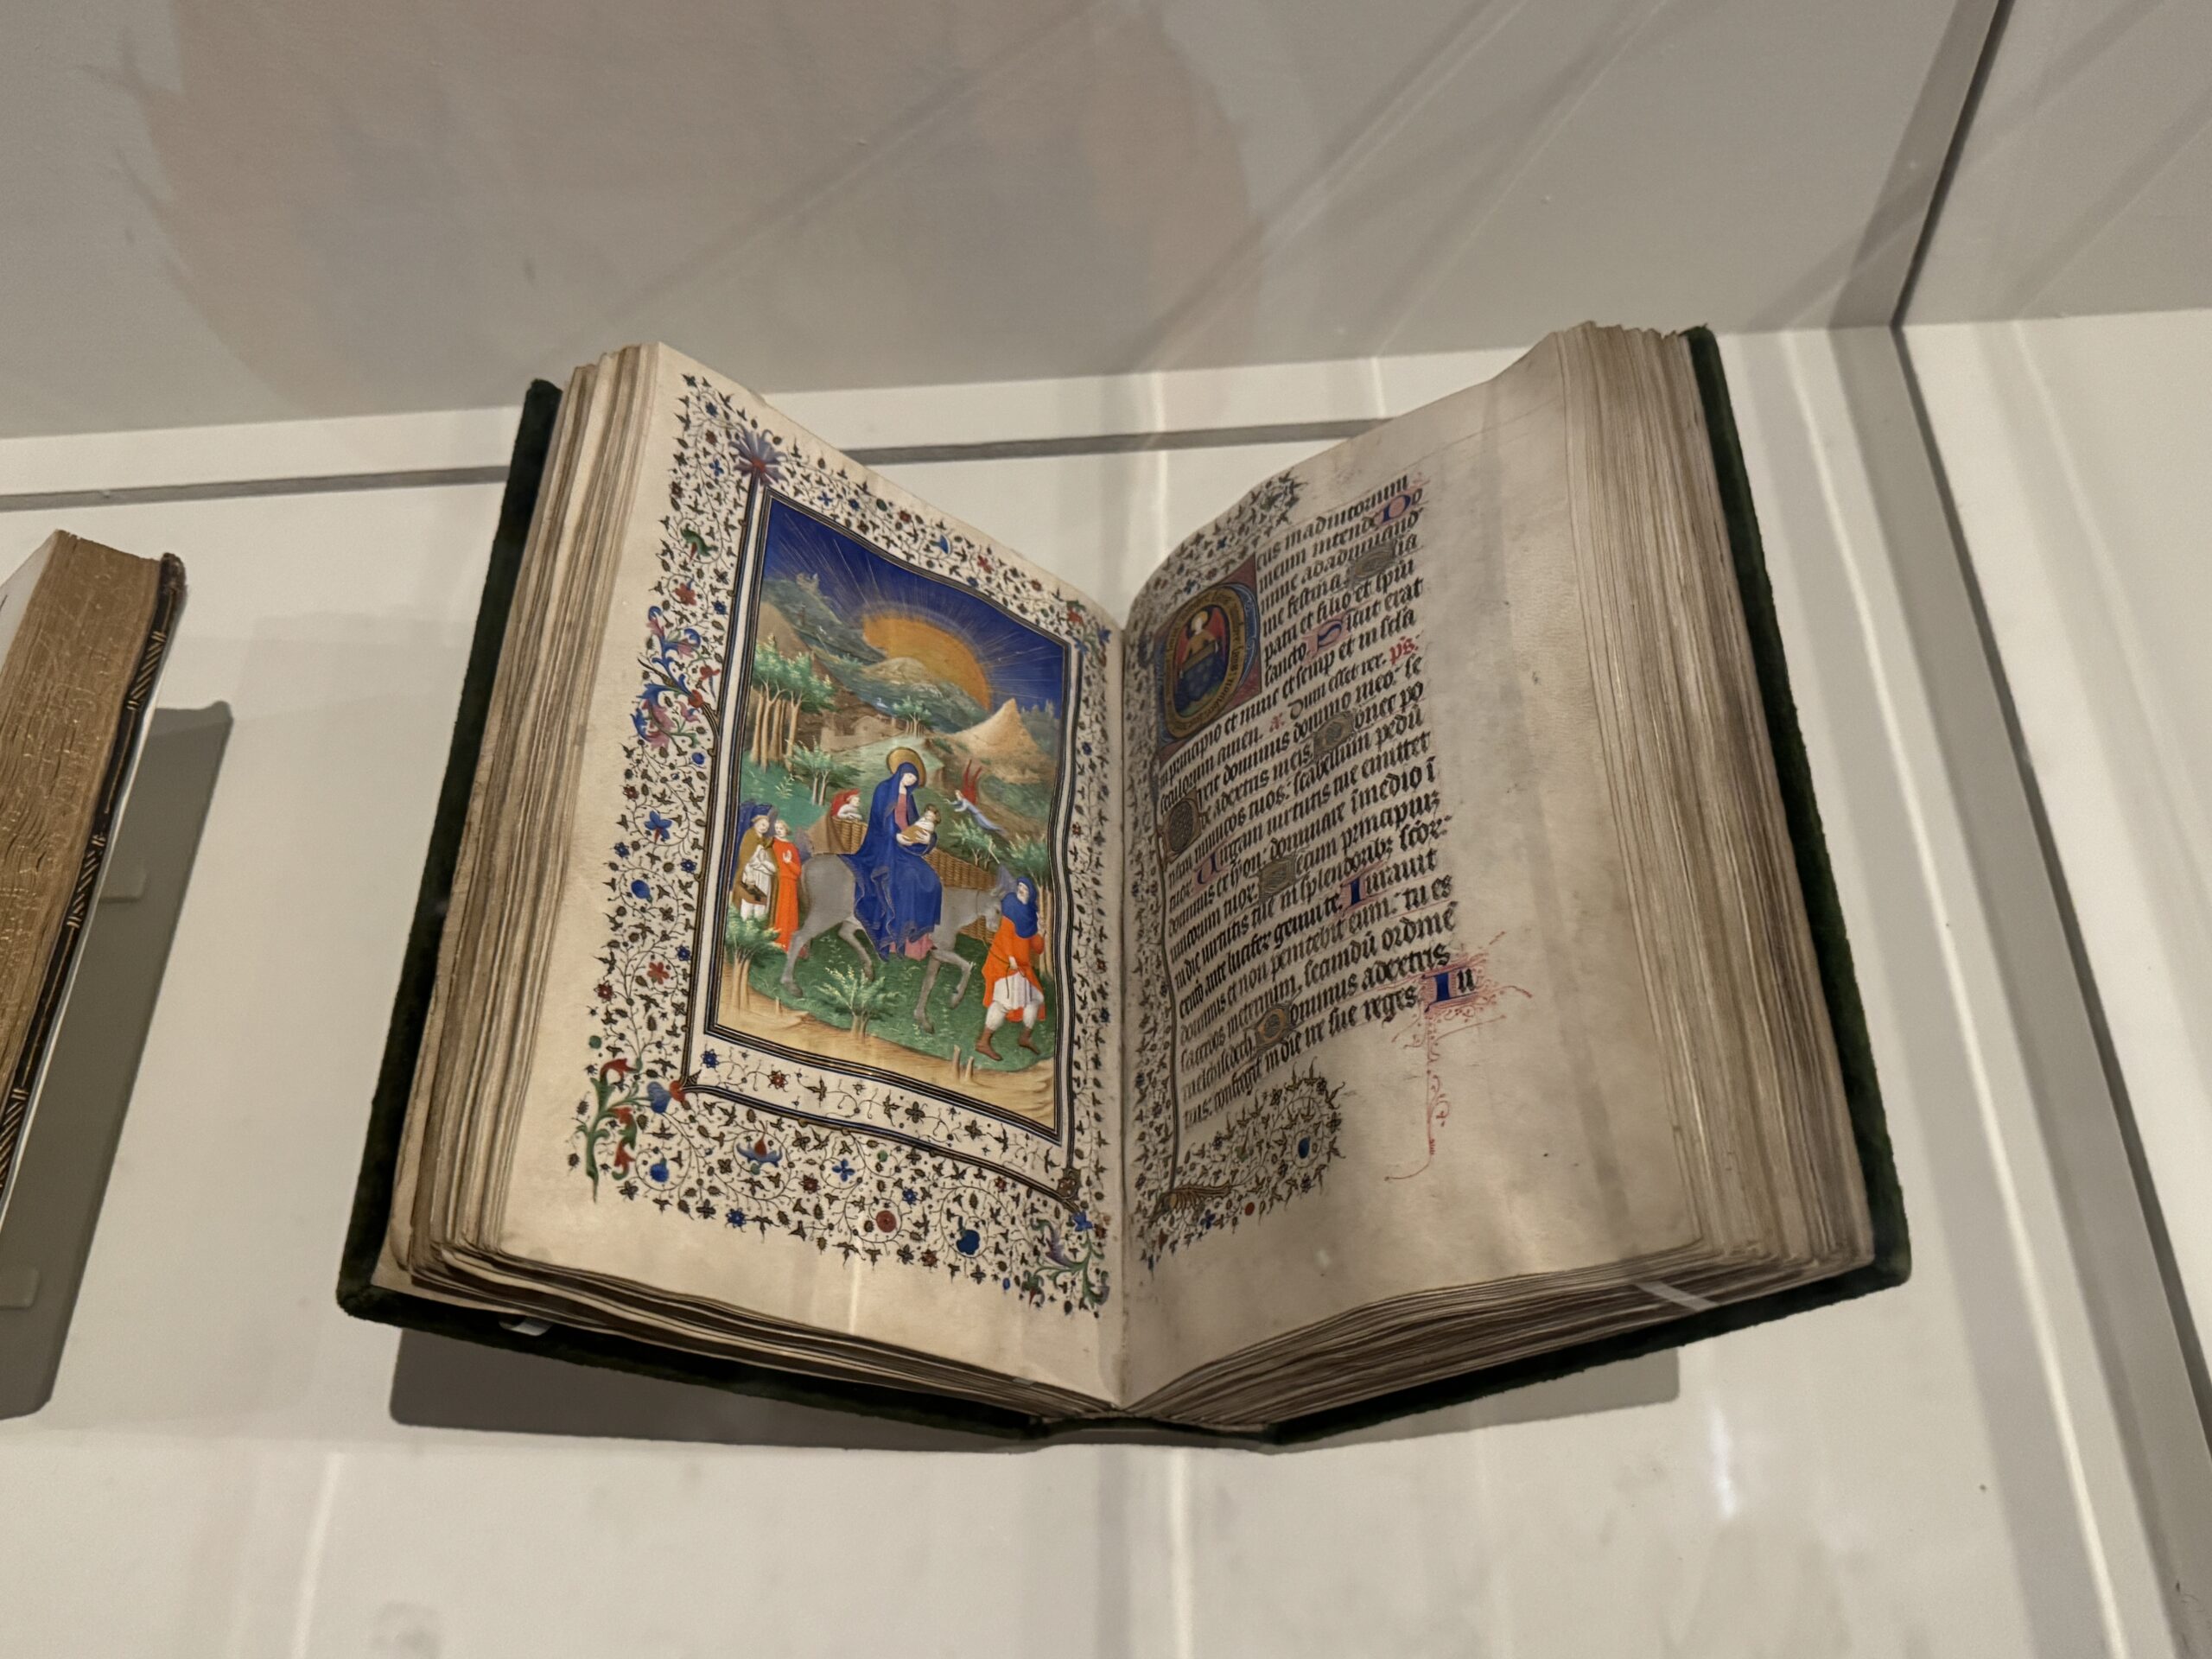 eus in adiutorium
meum intende Do
mine ad adiuuand
me festina lia
patri et filio et spiri
sancto. Sicut erat
in principio et nunc et semp et in scla
seculorum amen. a. Dum esset rex. ps.
Dixit dominus domino meo: se
de a dextris meis Donec po
nam inimicos tuos: scabellum pedū
tuor. Uirgam uirtutis tue emittet
dominus ex syon: dominare ī medio ī
imicorum tuor. Tecum principiū
in die uirtutis tue in splendorib; scōr
ex utero ante luciferū genui te. Iurauit
dominus et non penitebit eum: tu es
sacerdos in eternum, secundū ordinē
melchisedech. Dominus a dextris
tuis: confregit in die ire sue reges. Iu